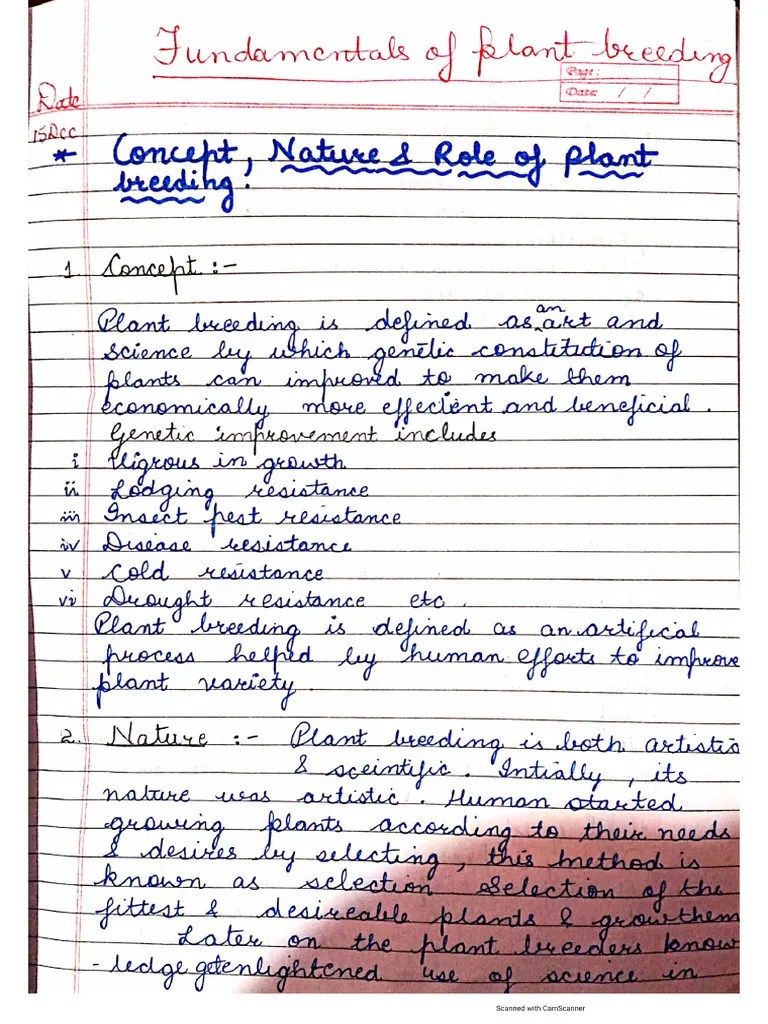 Fundamentals of plant breeding
Page:
Date: / /
Date
15Dec
* Concept, Nature & Role of plant
breeding.
1. Concept :-
Plant breeding is defined as an art and
science by which genetic constitution of
plants can improved to make them
economically more effecient and beneficial.
Genetic improvement includes
i Vigrous in growth
ii Lodging resistance
iii Insect pest resistance
iv Disease resistance
v Cold resistance
vi Drought resistance etc.
Plant breeding is defined as an artifical
process helped by human efforts to improve
plant variety.
2. Nature :- Plant breeding is both artistic
& sceintific. Intially, its
nature was artistic. Human started
growing plants according to their needs
& desires by selecting, this method is
known as selection Selection of the
fittest & desireable plants & grow them
Later on the plant breeders know
-ledge get enlightened use of science in
Scanned with CamScanner